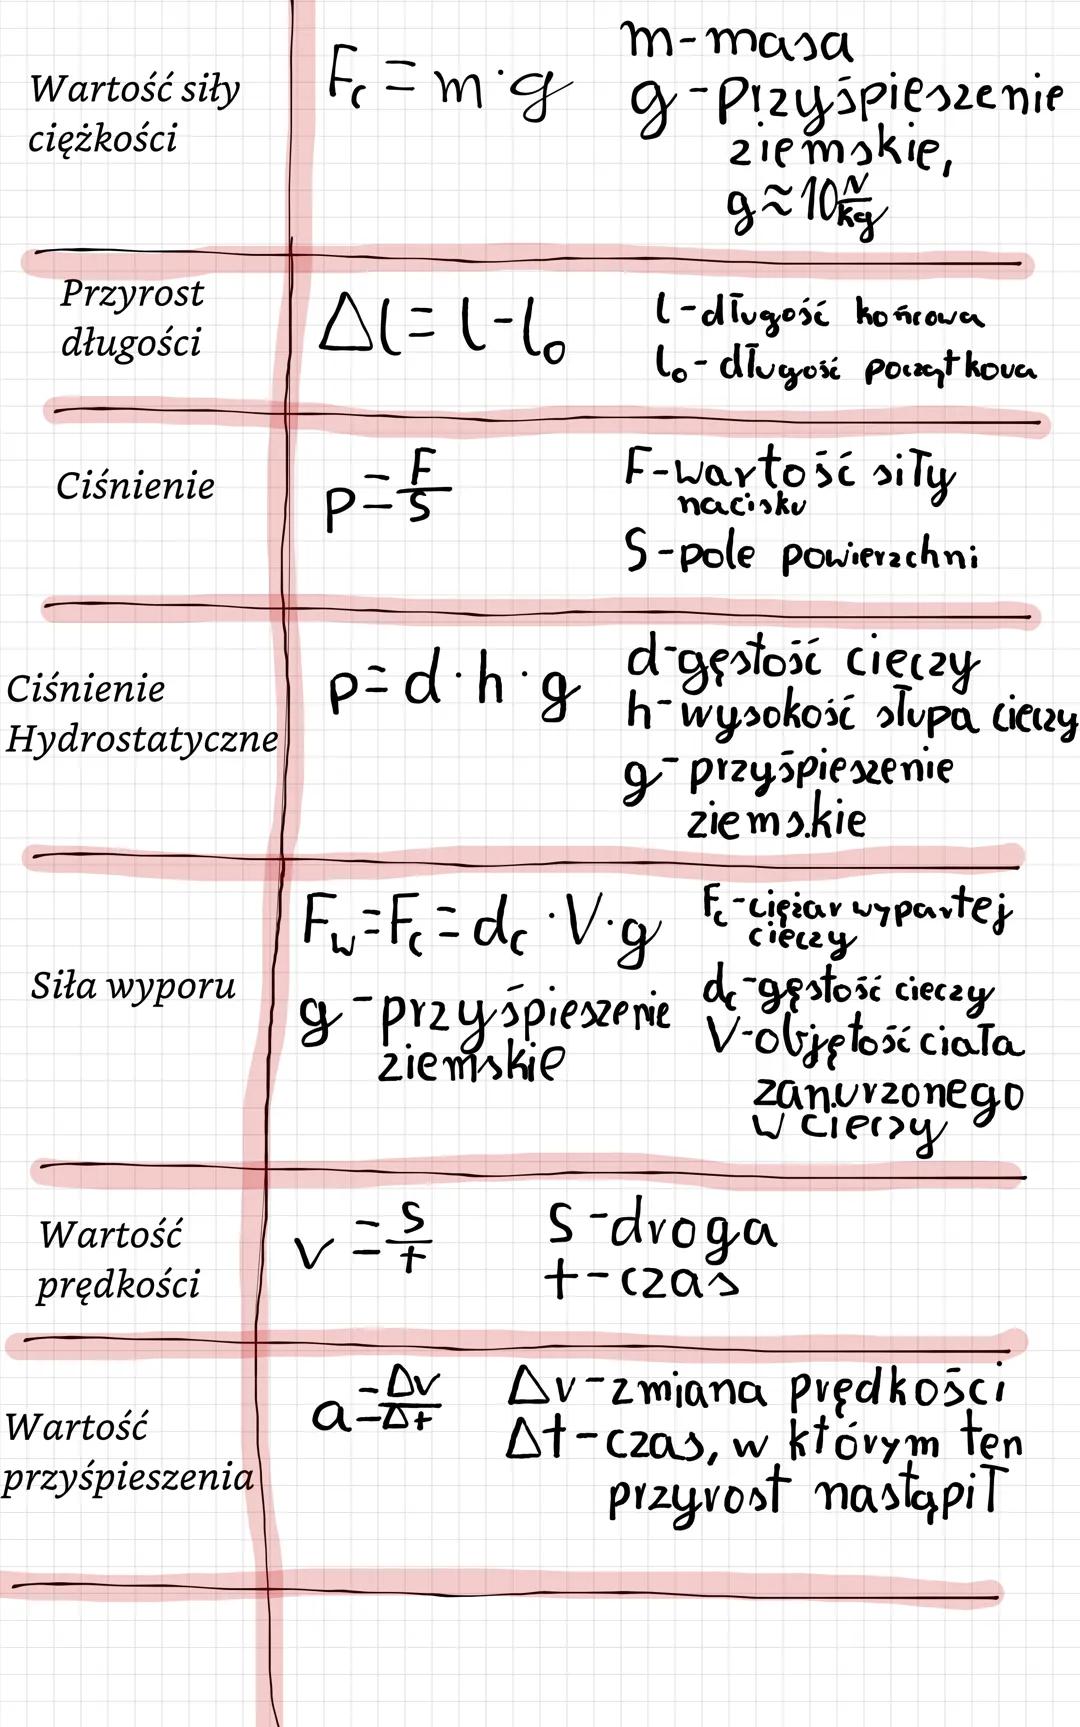 Wartość siły
ciężkości
Fc = m · g
m - masa
g - Przyśpieszenie
ziemskie,
g ≈ 10 N/kg
Przyrost
długości
Δl = l - l₀
l - długość końcowa
l₀ - długość początkowa
Ciśnienie
p = F/S
F - wartość siły
nacisku
S - pole powierzchni
Ciśnienie
Hydrostatyczne
p = d · h · g
d - gęstość cieczy
h - wysokość słupa cieczy
g - przyśpieszenie
ziemskie
Siła wyporu
Fw = Fc = dc · V · g
g - przyśpieszenie
ziemskie
Fc - ciężar wypartej
cieczy
dc - gęstość cieczy
V - objętość ciała
zanurzonego
w cieczy
Wartość
prędkości
v = s/t
S - droga
t - czas
Wartość
przyśpieszenia
a = Δv/Δt
Δv - zmiana prędkości
Δt - czas, w którym ten
przyrost nastąpił